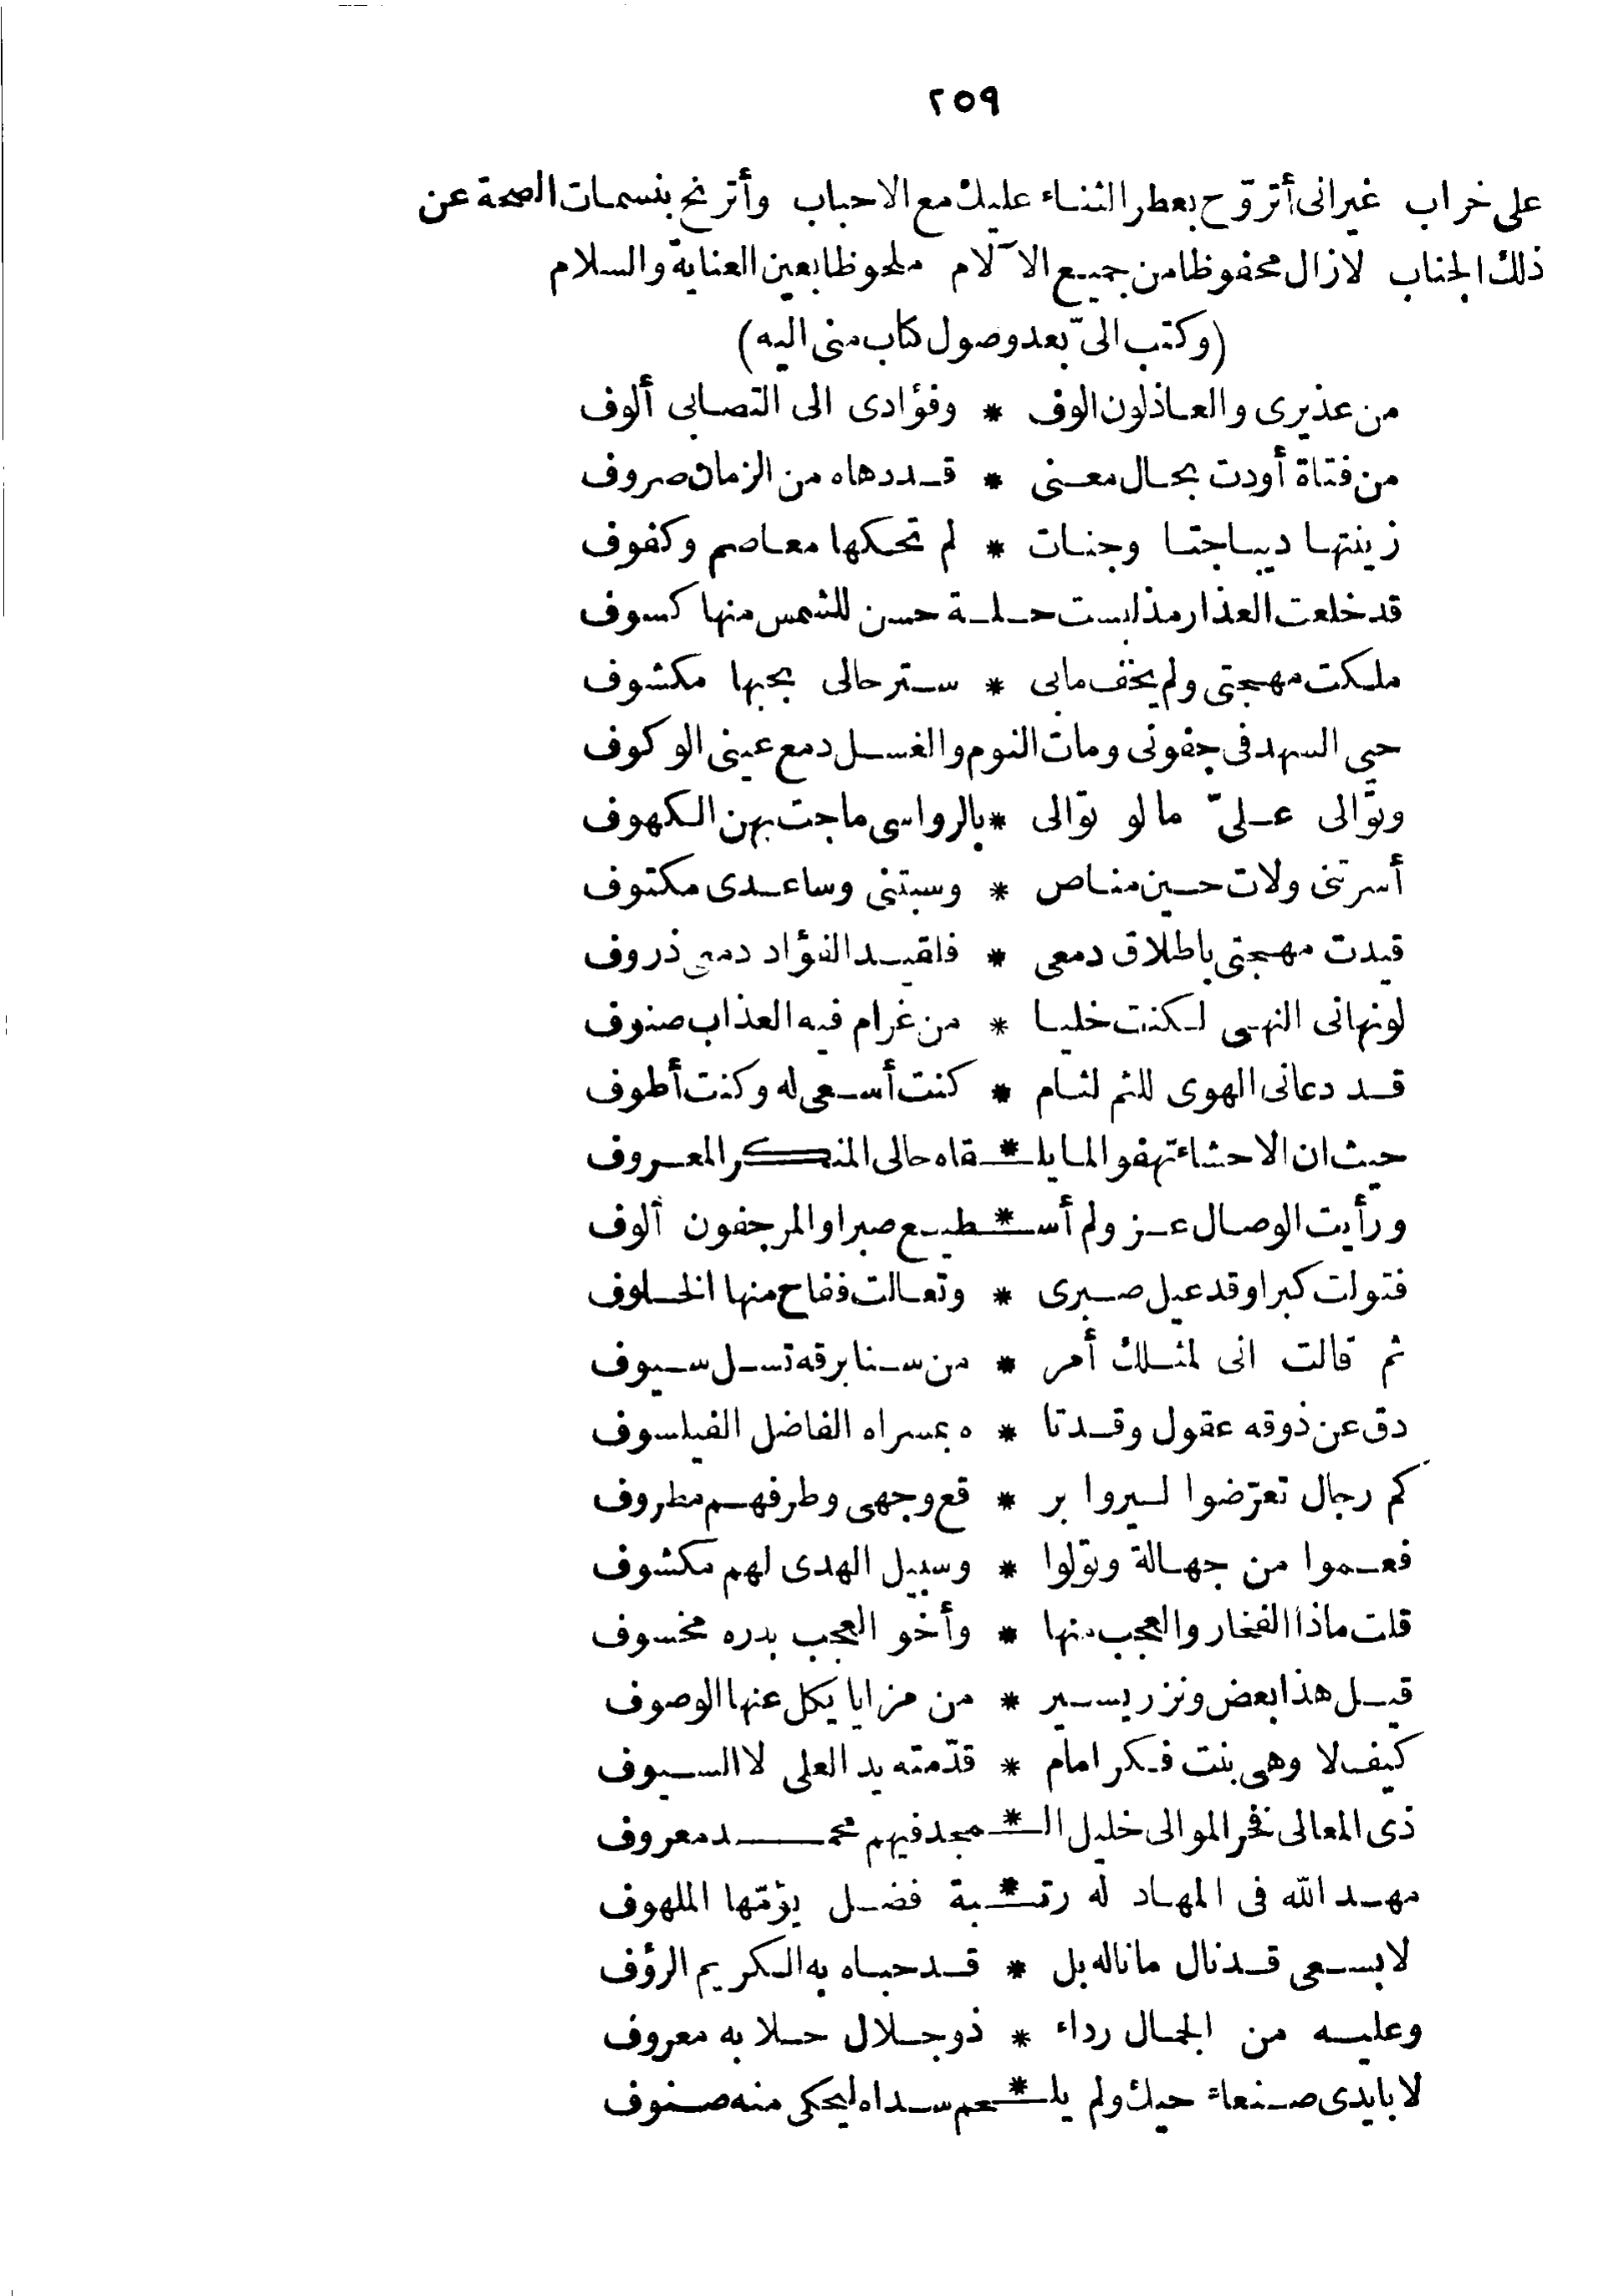 ٢٥٩
على خراب غير انى أتروّح بعطر الثناء عليك مع الاحباب وأترنح بنسمات الصحة عن
ذلك الجناب لازال محفوظا من جميع الآلام ملحوظا بعين العناية والسلام
(وكتب الىّ بعد وصول كتاب منى اليه)
من عذيرى والعاذلون الوف * وفؤادى الى التصابى ألوف
من فتاة أودت بحال معنى * قد دهاه من الزمان صروف
زينتها ديباجتا وجنات * لم تحكها معاصم وكفوف
قد خلعت العذار مذ لبست حلة حسن للشمس منها كسوف
ملكت مهجتى ولم يخف مابى * ستر حالى بحبها مكشوف
حيى السهد فى جفونى ومات النوم والغسل دمع عينى الوكوف
وتوّالى علىّ ما لو توّالى * بالرواسى ماجت بهن الكهوف
أسرتنى ولات حين مناص * وسبتنى وساعدى مكتوف
قيدت مهجتى باطلاق دمعى * فلقيد الفؤاد دمعى ذروف
لونهانى النهى لكنت خليا * من غرام فيه العذاب صنوف
قد دعانى الهوى للثم لثام * كنت أسعى له وكنت أطوف
حيث ان الاحشاء تهفو لما يلـ * ـقاه حالى المنكر المعروف
ورأيت الوصال عز ولم أسـ * ـطيع صبرا والمرجفون ألوف
فتولت كبرا وقد عيل صبرى * وتعالت ففاح منها الخلوف
ثم قالت انى لمثلك أمر * من سنا برقه تسل سيوف
دق عن ذوقه عقول وقد تا * ه بمسراه الفاضل الفيلسوف
كم رجال تعرّضوا ليروا بر * قع وجهى وطرفهم مطروف
فعموا من جهالة وتوّلوا * وسبيل الهدى لهم مكشوف
قلت ماذا الفخار والعجب منها * وأخو العجب بدره مخسوف
قيل هذا بعض ونزر يسير * من مزايا يكل عنها الوصوف
كيف لا وهى بنت فكر امام * قدّمته يد العلى لا السيوف
ذى المعالى فخر الموالى خليل الـ * ـمجد فيهم محمد معروف
مهد الله فى المهاد له رتـ * ـبة فضل يؤمّها الملهوف
لا بسعى قد نال ما ناله بل * قد حباه به الكريم الرؤف
وعليه من الجمال رداء * ذو جلال حلا به معروف
لا بايدى صنعاء حيك ولم يلـ * ـحم سداه ليحكى منه صنوف